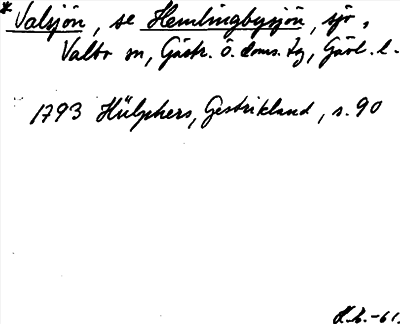 * Valsjön, se Hemlingbysjön, sjö,
Valbo sn, Gästr. Ö. doms. tg, Gävl. l.
1793 Hülphers, Gestrikland, s. 90
H.L.-61.